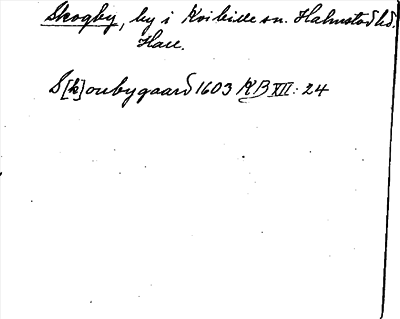 Skogby, by i Kvibille sn. Halmstad hd.
Hall.
S[k]oubygaard 1603 KB XII: 24